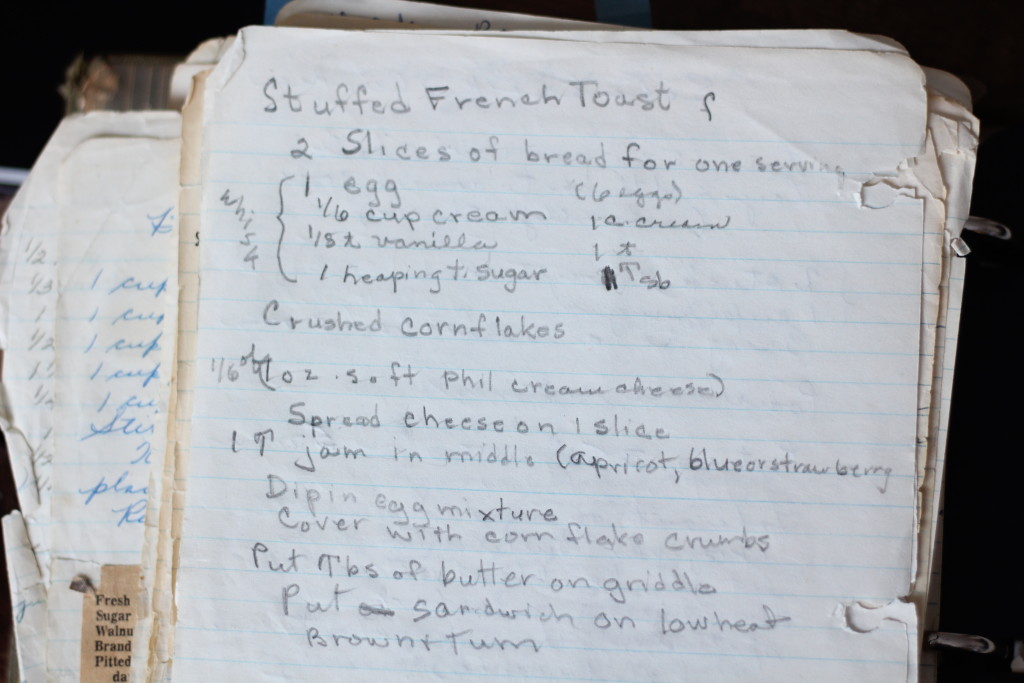 Stuffed French Toast
2 Slices of bread for one serving
1 egg (6 eggs)
1/6 cup cream 1 c. cream
1/8 t vanilla 1 t
1 heaping t. sugar 1 T
Crushed cornflakes
1/6 of (1 oz. soft phil cream cheese)
Spread cheese on 1 slice
1 T jam in middle (apricot, blue or strawberry
Dip in egg mixture
Cover with corn flake crumbs
Put Tbs of butter on griddle
Put sandwich on low heat
Brown & Turn
1/2
1/3 1 cup
1 1 cup
1/2 1 cup
1 cup
Fresh
Sugar
Walnu
Brand
Pitted
da